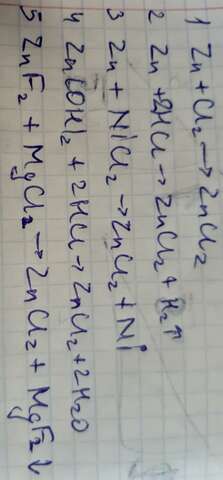 1 Zn + Cl₂ → ZnCl₂
2 Zn + 2HCl → ZnCl₂ + H₂↑
3 Zn + NiCl₂ → ZnCl₂ + Ni
4 Zn(OH)₂ + 2HCl → ZnCl₂ + 2H₂O
5 ZnF₂ + MgCl₂ → ZnCl₂ + MgF₂↓